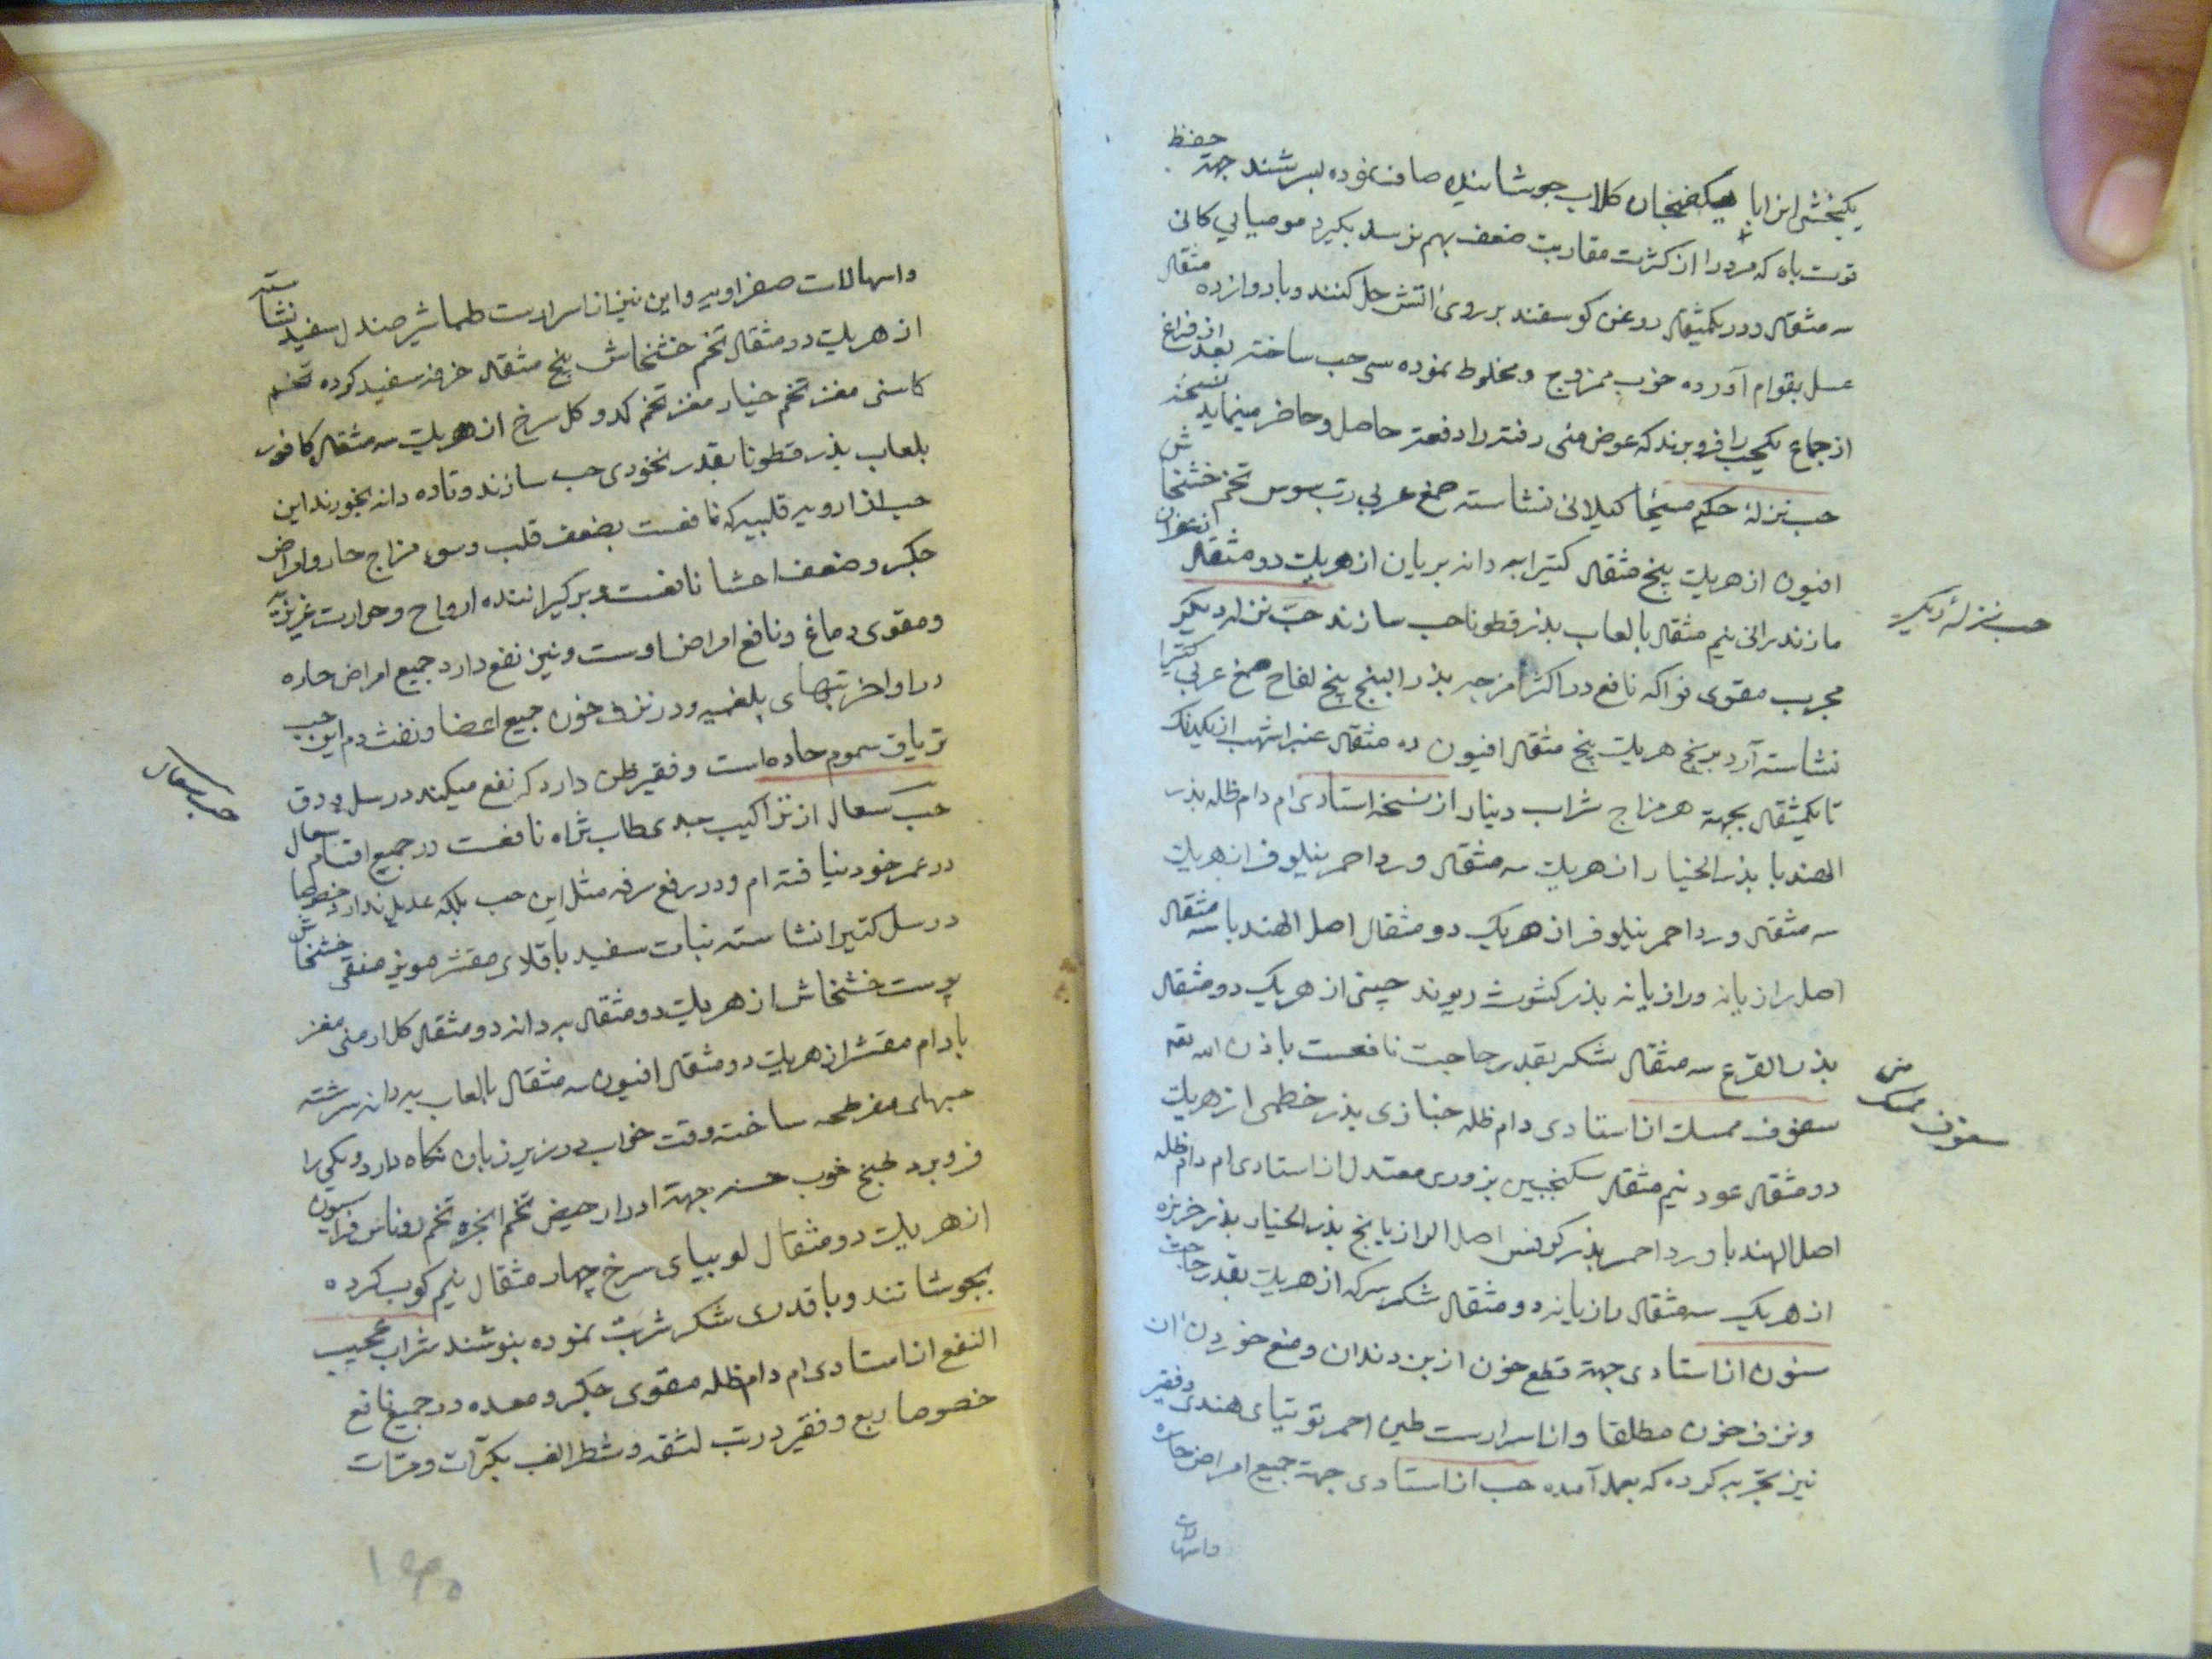 یکبخش این را با یکفنجان کلاب جوشانیده صاف نموده بسرشند جهة حفظ
قوت باه که مرد را از کثرت مقاربت ضعف بهم نرسد بکیرد مومیایی کانی
سه مثقال و در یکمثقال روغن کوسفند بر روی اتش حل کنند و با دوازده مثقال
عسل بقوام آورده خوب ممزوج و مخلوط نموده سی حب ساخته بعد از فراغ
از جماع یکحب را فرو برند که عوض منی رفته را دفعة حاصل و حاضر مینماید نسخه
حب نزلهٔ حکیم مسیحا کیلانی نشاسته صمغ عربی رب سوس تخم خشخاش
افیون از هریك پنج مثقال کتیرا به دانه بریان از هریك دو مثقال زعفران
مازندرانی نیم مثقال با لعاب بذر قطونا حب سازند حب نزله دیکر
مجرب مقوی فواکه نافع در اکثر امزجه بذر البنج بیخ لفاح صمغ عربی کتیرا
نشاسته آرد برنج هریك پنج مثقال افیون ده مثقال عنبر اشهب از یکدنك
تا یکمثقال بجهة هر مزاج شراب دینار از نسخه استادی ام دام ظله بذر
الهندبا بذر الخیار از هریك سه مثقال ورد احمر نیلوفر از هریك
سه مثقال ورد احمر نیلوفر از هریك دو مثقال اصل الهندبا سه مثقال
اصل رازیانه و رازیانه بذر کشوث ریوند چینی از هریك دو مثقال
بذر القرع سه مثقال شکر بقدر حاجت نافعست باذن الله تعه
سفوف ممسك از استادی دام ظله خبازی بذر خطمی از هریك
دو مثقال عود نیم مثقال سکنجبین بزوری معتدل از استادی ام دام ظله
اصل الهندبا ورد احمر بذر کرفس اصل الرازیانج بذر الخیار بذر خربزه
از هریك سه مثقال رازیانه دو مثقال شکر سرکه از هریك بقدر حاجت
سنون از استادی جهة قطع خون از بن دندان و منع خوردن ان
و نزف خون مطلقا و از اسرارست طین احمر توتیای هندی و فقیر
نیز تجربه کرده که بعمل آمده حب از استادی جهة جمیع امراض حاره
واسهالات
حب نزلهٔ دیکر
سفوف ممسك
واسهالات صفراویه و این نیز از اسرارست طباشیر صندل سفید نشاسته
از هریك دو مثقال تخم خشخاش پنج مثقال خرفه سفید کرده تخم
کاسنی مغز تخم خیار مغز تخم کدو کل سرخ از هریك سه مثقال کافور
بلعاب بذر قطونا بقدر نخودی حب سازند و تا ده دانه بخورند این
حب از ادویه قلبیه که نافعست بضعف قلب و سوء مزاج حار و امراض
جکر و ضعف احشا نافعست و برکیراننده ارواح و حرارت غریزیه
و مقوی دماغ و نافع امراض اوست و نیز نفع دارد جمیع امراض حاره
در اواخر تبهای بلغمیه و در نزف خون جمیع اعضا و نفث دم این حب
تریاق سموم حاده است و فقیر ظن دارد که نفع میکند در سل و دق
حب سعال از تراکیب جدی طاب ثراه نافعست در جمیع اقسام سعال
در عمر خود نیافته ام و در رفع سرفه مثل این حب بلکه عدیل ندارد خصوصا
در سل کتیرا نشاسته نبات سفید باقلای مقشر مویز منقی خشخاش
پوست خشخاش از هریك دو مثقال به دانه دو مثقال کل ارمنی مغز
بادام مقشر از هریك دو مثقال افیون سه مثقال بالعاب به دانه سرشته
حبهای مفرطحه ساخته وقت خواب در زیر زبان نکاه دارد و یکی را
فرو برد طبیخ خوب جهة ادرار حیض تخم انجره تخم روناس فراسیون
از هریك دو مثقال لوبیای سرخ چهار مثقال نیم کوب کرده
بجوشانند و با قدری شکر شربت نموده بنوشند شراب عجیب
النفع از استادی ام دام ظله مقوی جکر و معده و در جمیع نافع
خصوصا ربع و فقیر در تب لثقه و شطر الغب بکرات و مرات
حب سعال